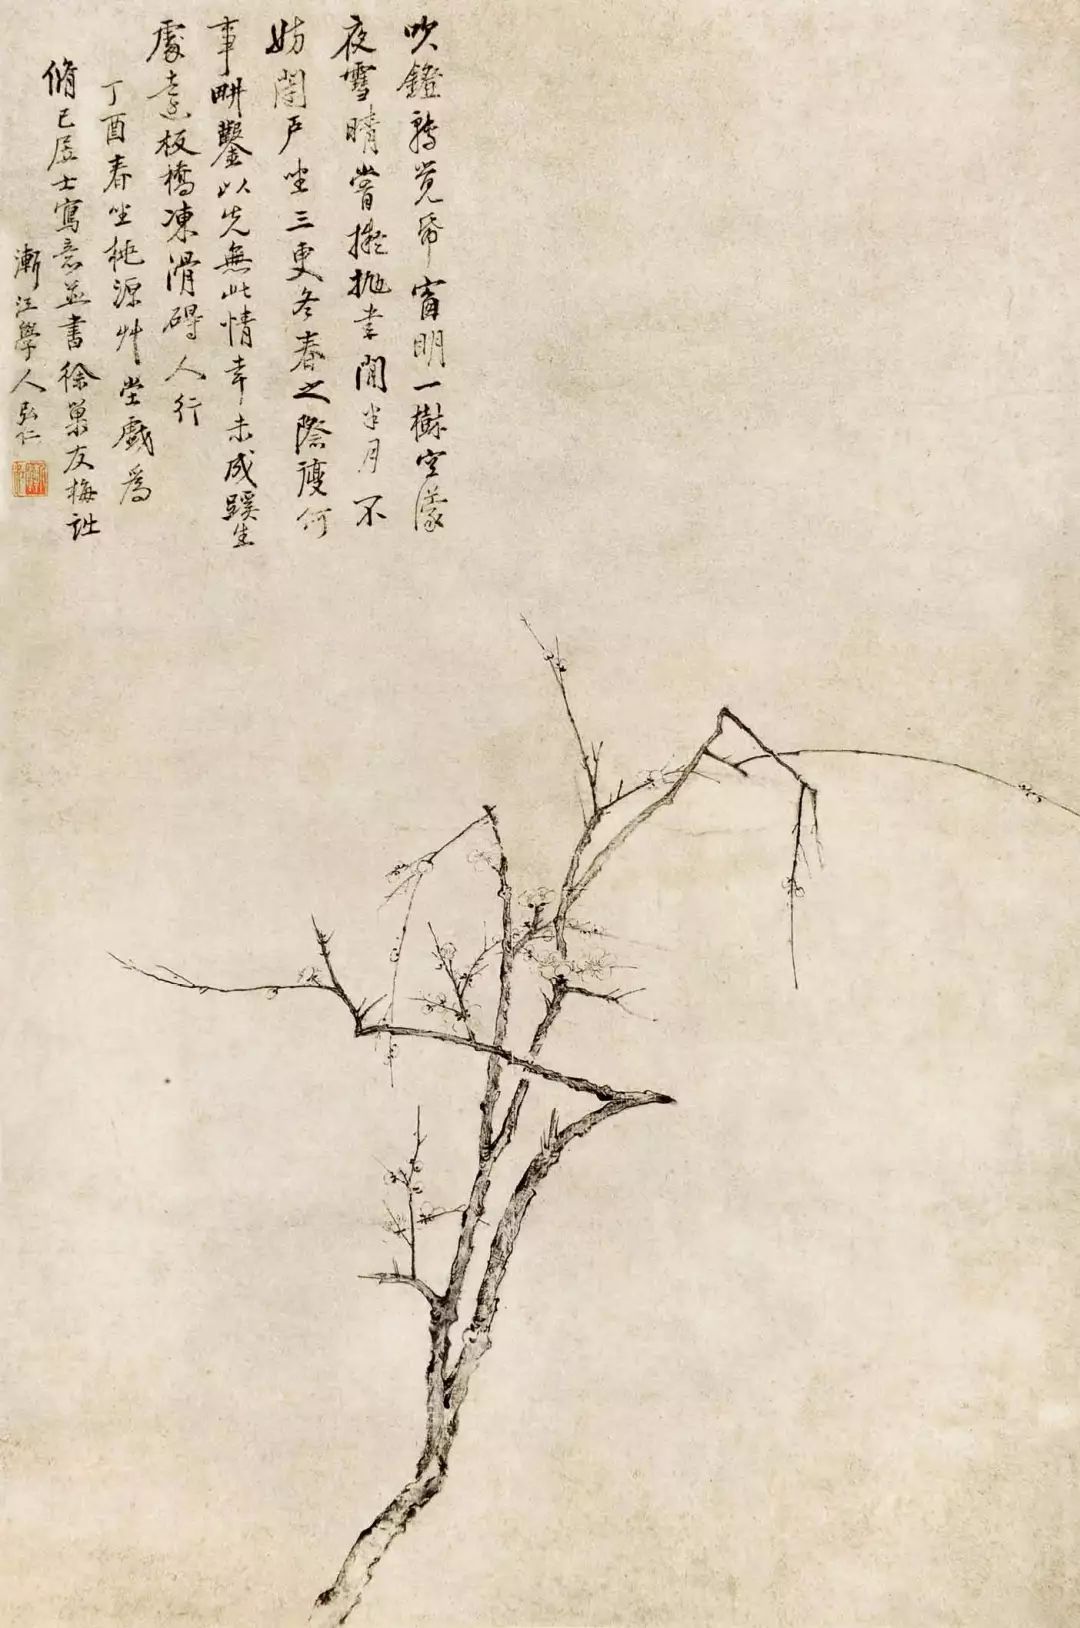 吹鐙轉覺帋窗明一樹空濛
夜雪晴嘗擬拋書閒半月不
妨閉戶坐三更冬春之際復何
事畊鑿以先無此情幸未成蹊生
處遠板橋凍滑礙人行
丁酉春坐桃源艸堂戲為
脩己居士寫意並書徐巢友梅詩
漸江學人弘仁